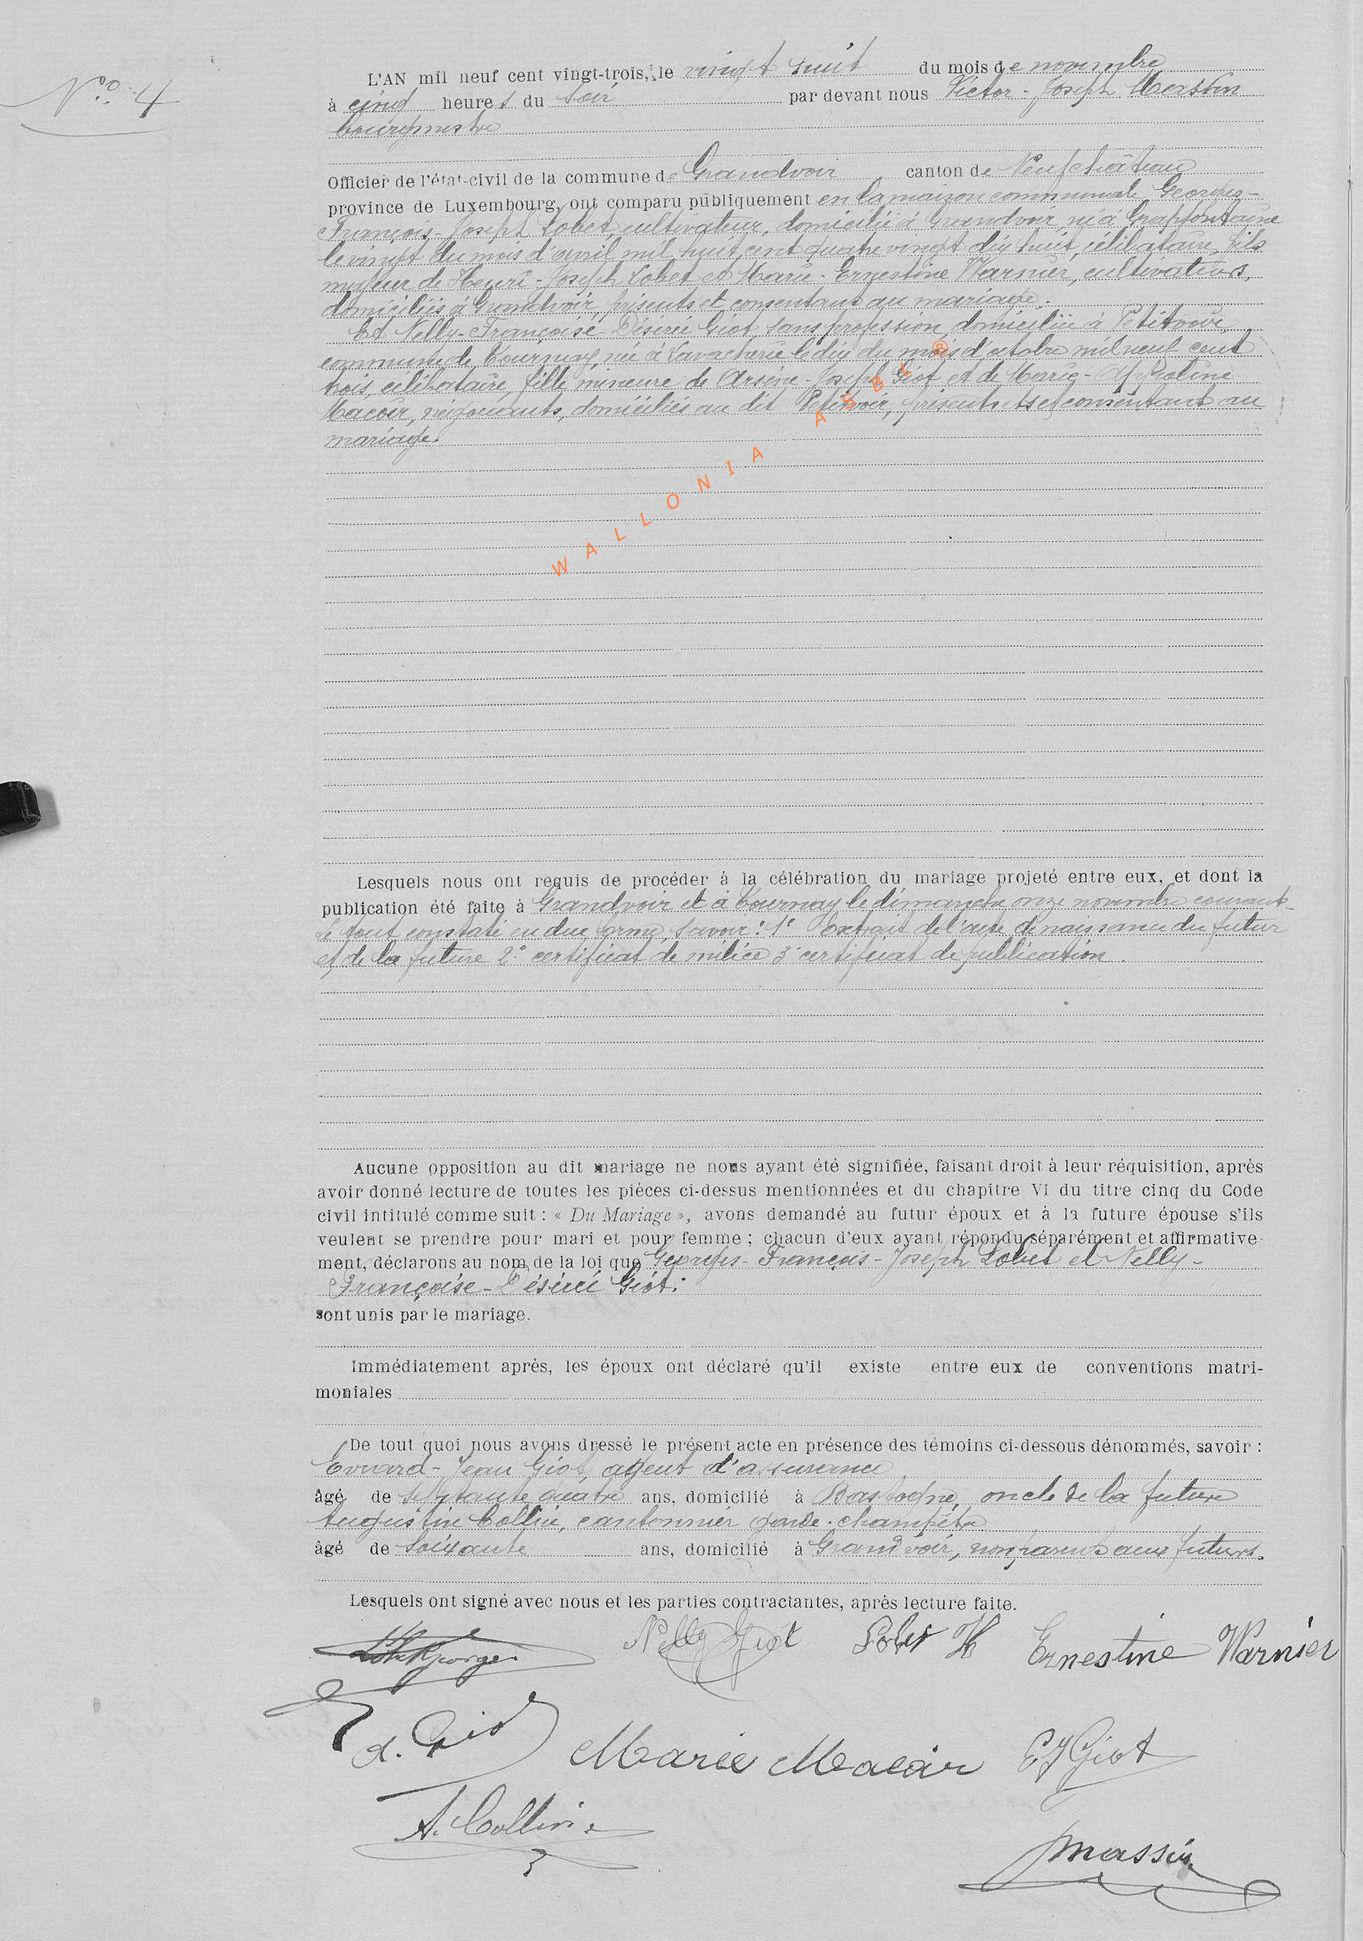 N° 4
L'AN mil neuf cent vingt-trois, le vingt huit du mois de novembre
à cinq heures du soir par devant nous Victor-Joseph Massin
bourgmestre
Officier de l'état-civil de la commune de Grandvoir canton de Neufchâteau
province de Luxembourg, ont comparu publiquement en la maison communal Georges-
François-Joseph Lobet, cultivateur, domicilié à Grandvoir, né à Grapfontaine
le vingt du mois d'avril mil huit cent quatre vingt dix huit, célibataire, fils
majeur de Henri-Joseph Lobet et Marie-Ernestine Warnier, cultivateurs,
domiciliés à Grandvoir, présents et consentant au mariage.
Et Nelly-Françoise-Désirée Giot sans profession, domiciliée à Petitvoir
commune de Tournay, née à Lavacherie le dix du mois d'octobre mil neuf cent
trois, célibataire, fille mineure de Arsène-Joseph Giot et de Marie-Appoline
Macoir, négociants, domiciliés au dit Petitvoir, présents et consentant au
mariage.
WALLONIA ASBL ®
Lesquels nous ont requis de procéder à la célébration du mariage projeté entre eux, et dont la
publication été faite à Grandvoir et à Tournay le dimanche onze novembre courant
le tout constaté en due forme, savoir: 1° Extrait de l'acte de naissance du futur
et de la future 2° certificat de milice 3° certificat de publication.
Aucune opposition au dit mariage ne nous ayant été signifiée, faisant droit à leur réquisition, après
avoir donné lecture de toutes les pièces ci-dessus mentionnées et du chapitre VI du titre cinq du Code
civil intitulé comme suit : « Du Mariage », avons demandé au futur époux et à la future épouse s'ils
veulent se prendre pour mari et pour femme ; chacun d'eux ayant répondu séparément et affirmative-
ment, déclarons au nom de la loi que Georges-François-Joseph Lobet et Nelly-
Françoise-Désirée Giot:
sont unis par le mariage.
Immédiatement après, les époux ont déclaré qu'il existe entre eux de conventions matri-
moniales
De tout quoi nous avons dressé le présent acte en présence des témoins ci-dessous dénommés, savoir :
Edouard-Jean Giot, agent d'assurance
âgé de septante quatre ans, domicilié à Bastogne, oncle de la future
Augustin Collin, cantonnier garde-champêtre
âgé de soixante ans, domicilié à Grandvoir, non parents aux futurs.
Lesquels ont signé avec nous et les parties contractantes, après lecture faite.
Lobet Georges Nelly Giot Lobet H Ernestine Warnier
A. Giot Marie Macoir EJ Giot
A. Collin
Massin